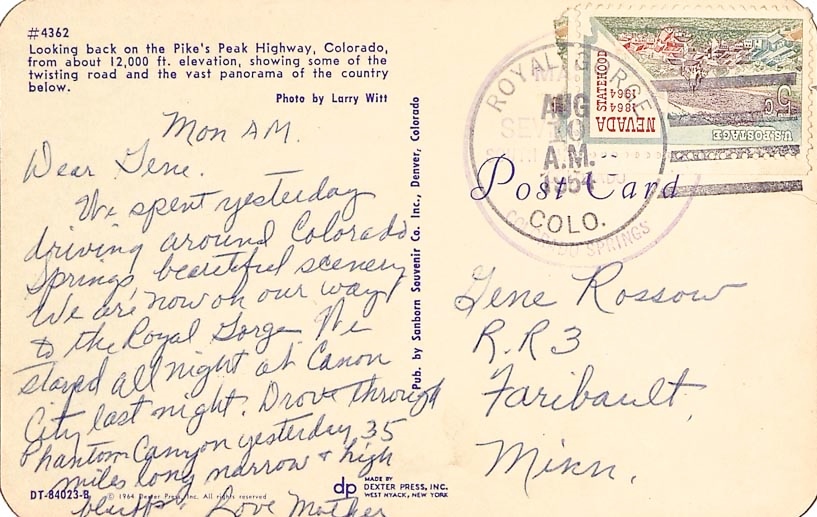 #4362
Looking back on the Pike's Peak Highway, Colorado,
from about 12,000 ft. elevation, showing some of the
twisting road and the vast panorama of the country
below.
Photo by Larry Witt
Mon A.M.
Dear Gene.
We spent yesterday
driving around Colorado
Springs, beautiful scenery
We are now on our way
to the Royal Gorge. We
stayed all night at Canon
City last night. Drove through
Phantom Canyon yesterday 35
miles long narrow & high
bluffs. Love Mother
DT-84023-B
© 1964 Dexter Press, Inc. All rights reserved
Pub. by Sanborn Souvenir Co. Inc., Denver, Colorado
dp
MADE BY
DEXTER PRESS, INC.
WEST NYACK, NEW YORK
ROYAL GORGE
AUG
10
A.M.
COLO.
COLORADO SPRINGS
NEVADA
STATEHOOD
1864
1964
5c
U.S. POSTAGE
Post Card
Gene Rossow
R.R 3
Faribault,
Minn.